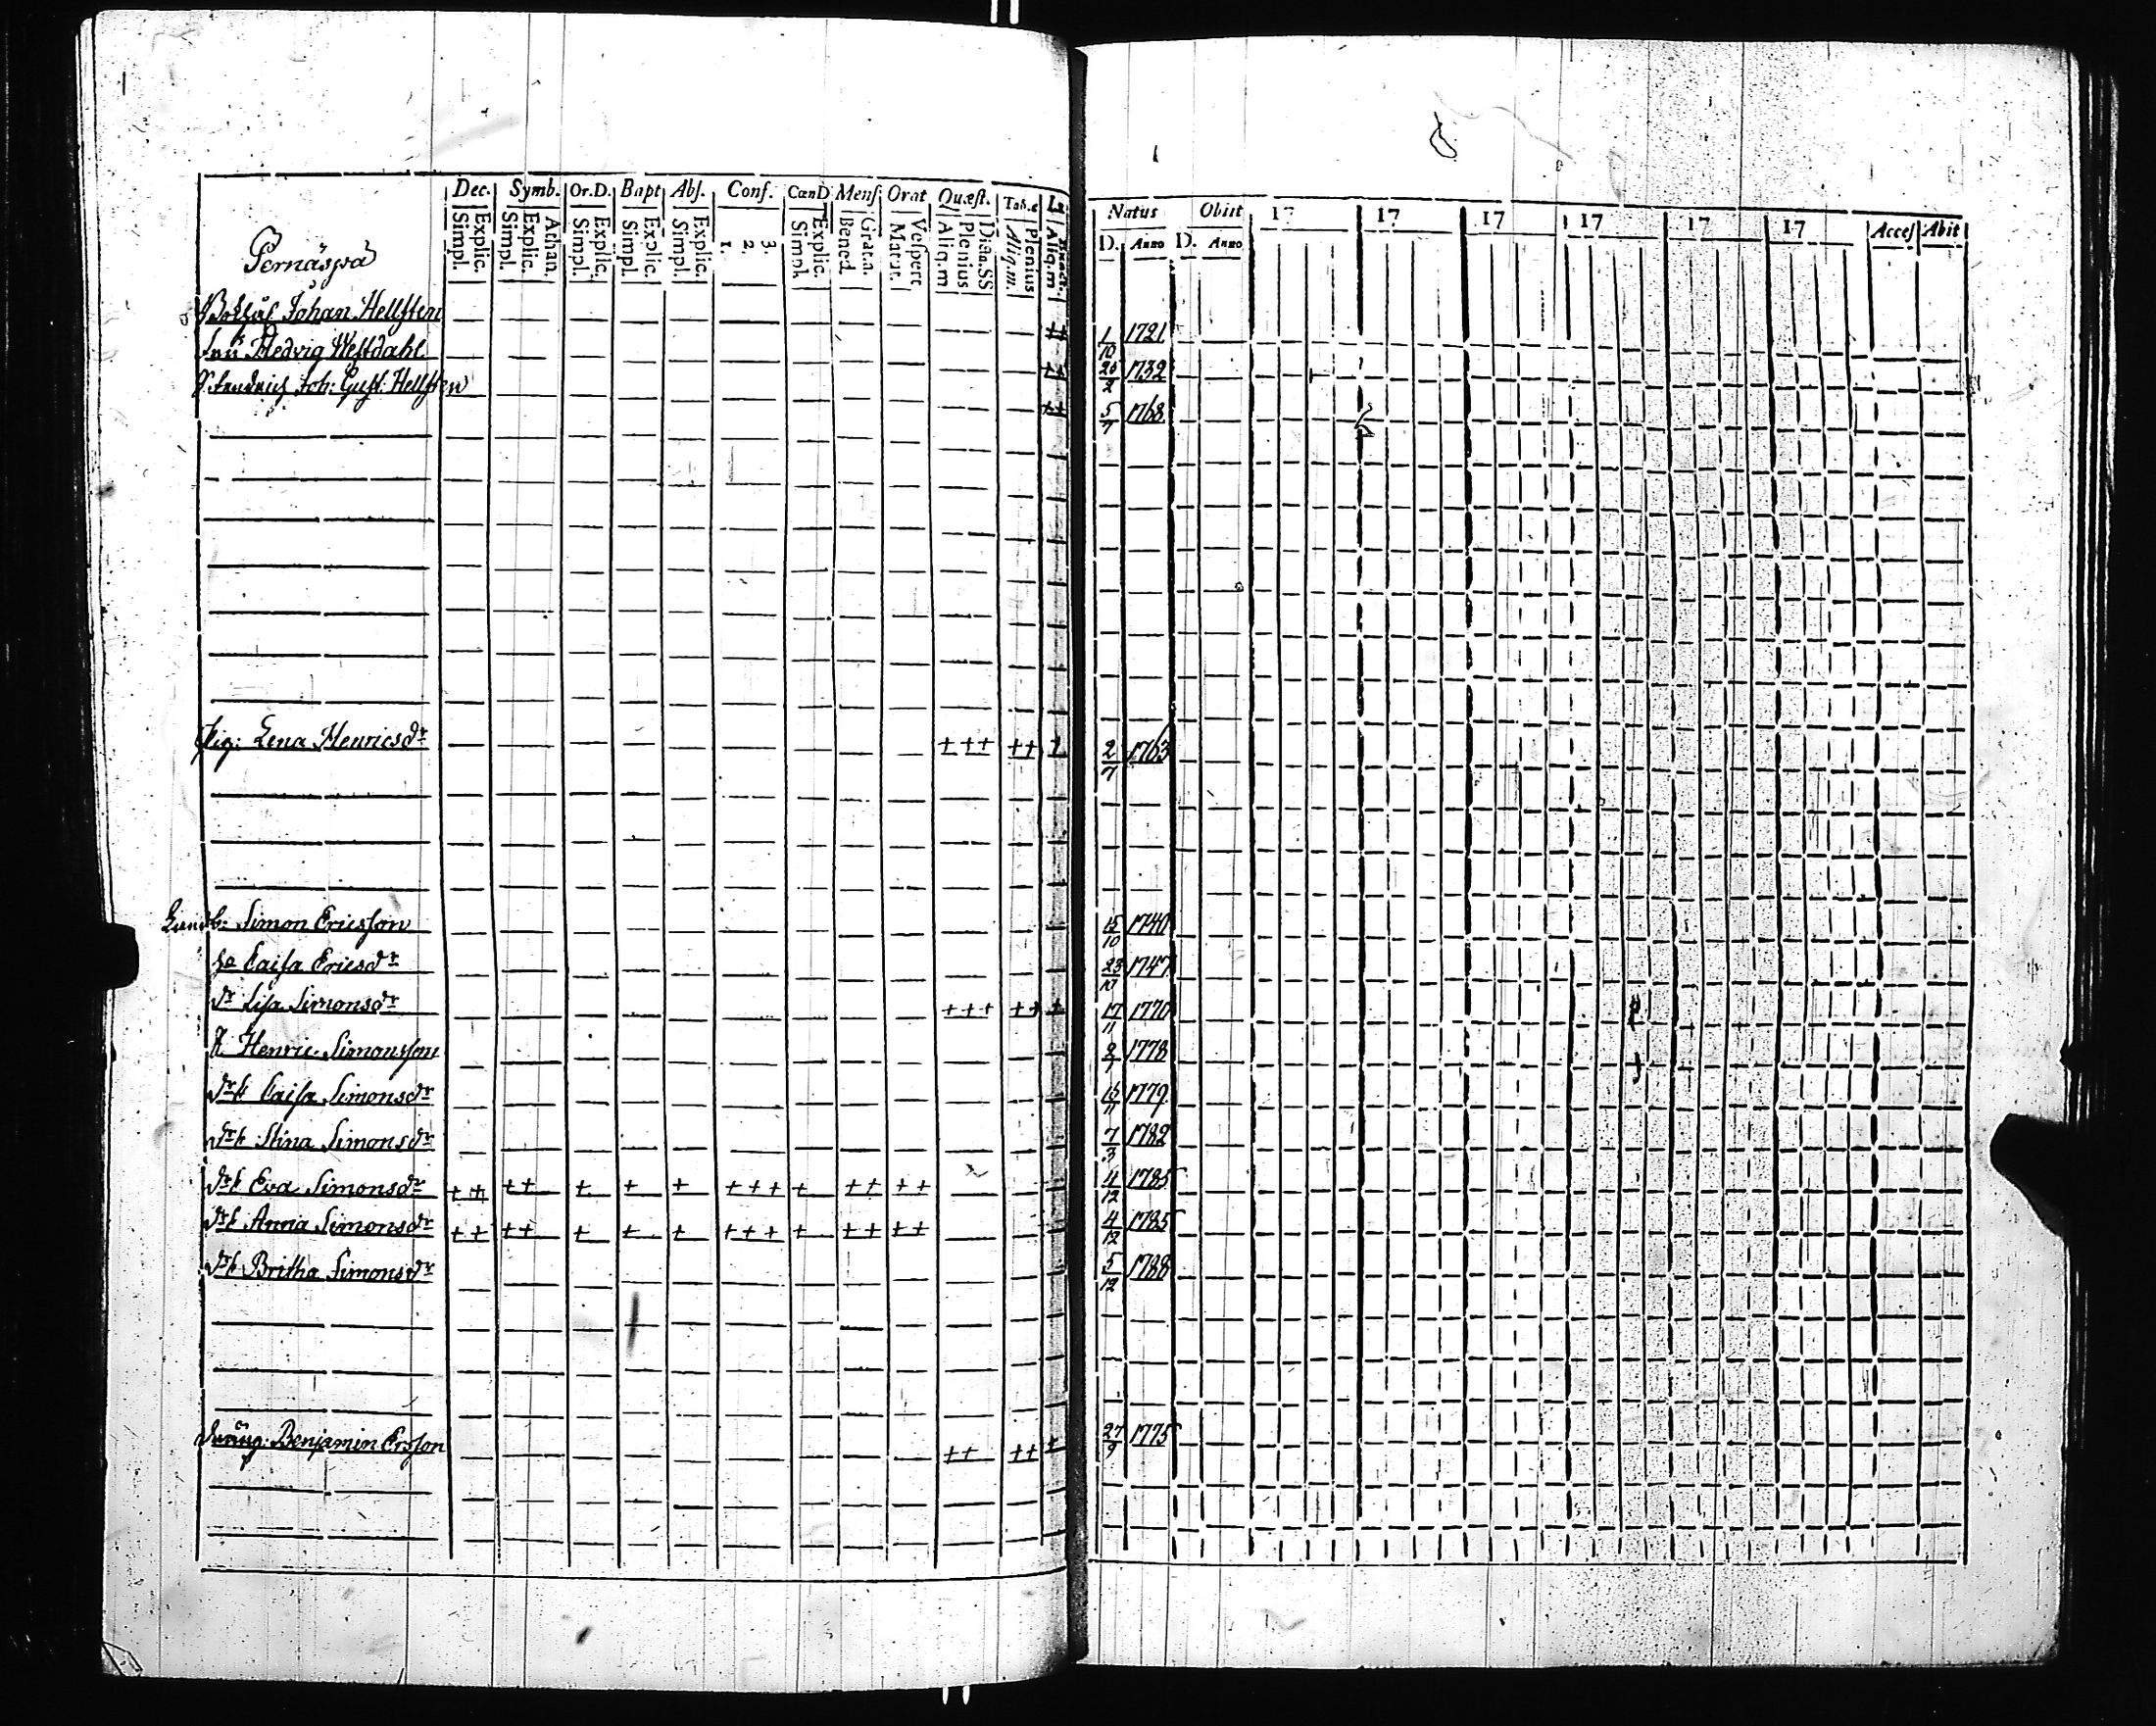 Dec. Symb. Or.D. Bapt Abs. Conf. CœnD Mens. Orat Quæst. Tab.
Simpl. Explic. Simpl. Explic. Athan. Simpl. Explic. Simpl. Explic. Simpl. Explic. 1. 2. 3. Simpl. Explic. Bened. Grat.a. Matut. Vespert Aliq.m Plenius Dicta.SS Aliq.m. Plenius Aliq.m
Pernäsjvå
Johan Hellsten ++
Fru Hedvig Westdahl ++
Joh: Gust: Hellsten ++
Pig: Lena Henricsdr +++ ++ +
Simon Ericsson
Caisa Ericsdr
dr Lisa Simonsdr +++ ++ +
Henric Simonsson
dr Caisa Simonsdr
dr Stina Simonsdr
dr Eva Simonsdr ++ ++ + + + +++ + ++ ++
dr Anna Simonsdr ++ ++ + + + +++ + ++ ++
dr Britha Simonsdr
Benjamin Ersson ++ ++ +
Natus Obiit 17 17 17 17 17 17 Acces Abit
D. Anno D. Anno
1/10 1721
20/2 1732
5/7 1768
2/7 1763
15/10 1740
23/10 1747
17/11 1770
1778
1779
7/3 1782
4/12 1785
4/12 1785
5/12 1788
27/9 1775